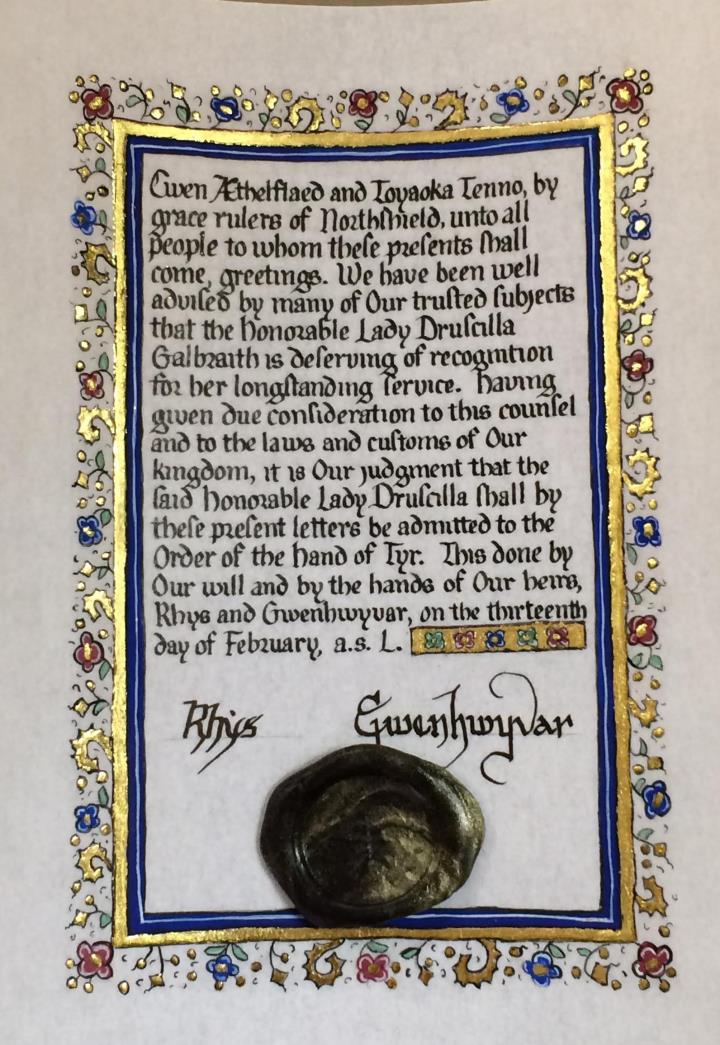 Cwen Æthelflaed and Toyaoka Tenno, by
grace rulers of Northſhield, unto all
people to whom theſe preſents ſhall
come, greetings. We have been well
adviſed by many of Our trusted ſubjects
that the Honorable Lady Druſcilla
Galbraith is deſerving of recognition
for her longſtanding ſervice. Having
given due conſideration to this counſel
and to the laws and customs of Our
kingdom, it is Our judgment that the
ſaid Honorable Lady Druſcilla ſhall by
theſe preſent letters be admitted to the
Order of the Hand of Tyr. This done by
Our will and by the hands of Our heirs,
Rhys and Gwenhwyvar, on the thirteenth
day of February, a.s. L.
Rhys Gwenhwyvar